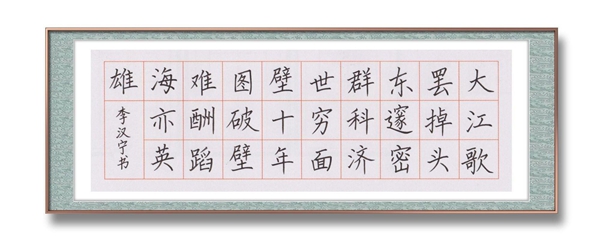 大江歌
罢掉头
东邃密
群科济
世穷面
壁十年
图破壁
难酬蹈
海亦英
雄
李汉宁书